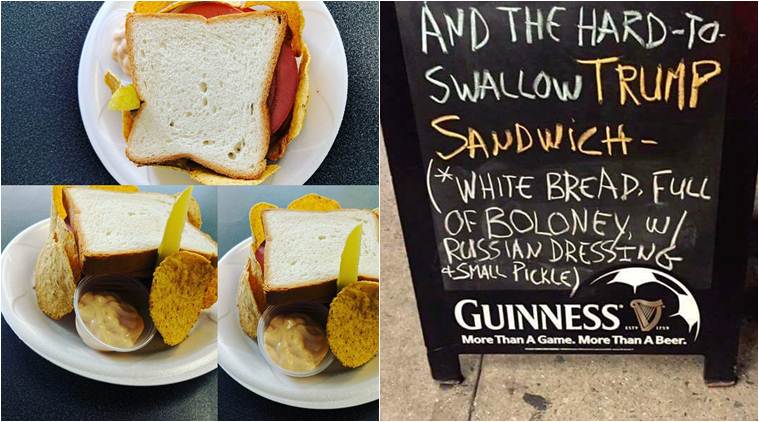 AND THE HARD-TO-
SWALLOW TRUMP
SANDWICH-
(*WHITE BREAD, FULL
OF BOLONEY, W/
RUSSIAN DRESSING
+SMALL PICKLE)
GUINNESS
ESTD 1759
More Than A Game. More Than A Beer.